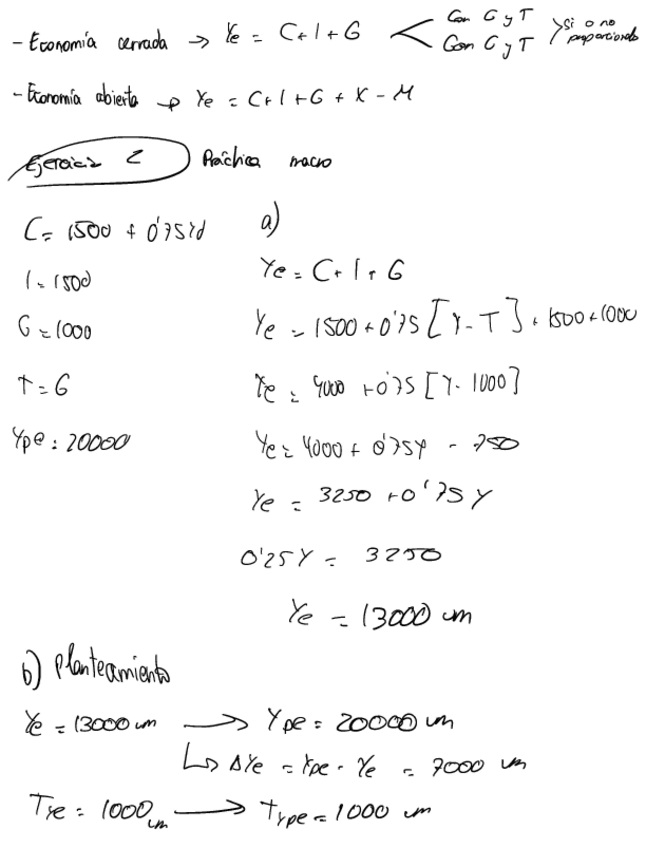 - Economía cerrada → Ye = C + I + G < Con G y T
Con G y T > si o no proporcionado
- Economía abierta → Ye = C + I + G + X - M
Ejercicio 2 Práctica macro
C = 1500 + 0'75Yd
I = 1500
G = 1000
T = G
Ype = 20000
a)
Ye = C + I + G
Ye = 1500 + 0'75 [Y - T] + 1500 + 1000
Ye = 4000 + 0'75 [Y - 1000]
Ye = 4000 + 0'75Y - 750
Ye = 3250 + 0'75Y
0'25Y = 3250
Ye = 13000 um
b) Planteamiento
Ye = 13000 um → Ype = 20000 um
↳ ΔYe = Ype - Ye = 7000 um
Tye = 1000 um → Type = 1000 um